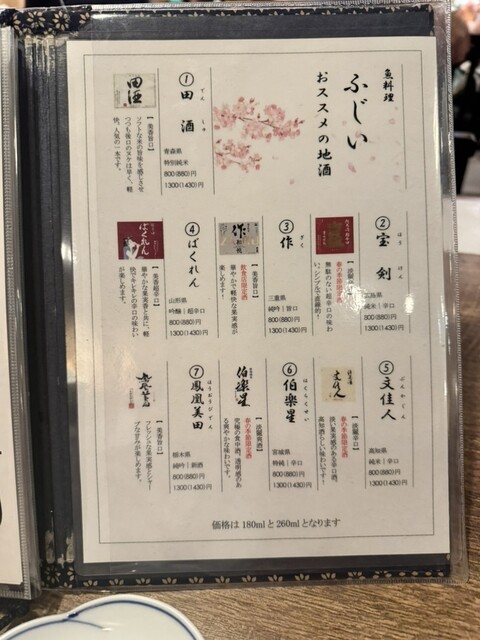 魚料理
ふじい
おススメの地酒
①田酒
でんしゅ
青森県
特別純米
800(880)円
1300(1430)円
田酒
【美香旨口】
ソフトな米の旨味を感じさせ
つつも後口のヌケは早く、軽
快。人気の一本です。
②宝剣
ほうけん
広島県
純米｜辛口
800(880)円
1300(1430)円
春の季節限定酒
無駄のない超辛口の味わ
い。シンプルで直線的！
③作
ざく
三重県
純吟｜旨口
800(880)円
1300(1430)円
作
【美香旨口】
飲食店限定酒
華やかで軽快な果実感が
楽しめます！
④ばくれん
山形県
吟醸｜超辛口
800(880)円
1300(1430)円
ばくれん
【美香辛口】
華やかな果実香と共に、軽
快でキレキレの辛口の味わい
が楽しめます。
⑤文佳人
ぶんかじん
高知県
純米｜辛口
800(880)円
1300(1430)円
文佳人
【淡麗辛口】
春の季節限定酒
淡い果実感のある辛口。
高知酒らしい味わいです！
⑥伯楽星
はくらくせい
宮城県
特純｜辛口
800(880)円
1300(1430)円
伯楽星
【淡麗爽酒】
春の季節限定酒
究極の食中酒。透明感のあ
る爽やかな味わいです。
⑦鳳凰美田
ほうおうびでん
栃木県
純吟｜新酒
800(880)円
1300(1430)円
【美香旨口】
フレッシュな果実感とシャー
プな甘みが楽しめます。
価格は180mlと260mlとなります